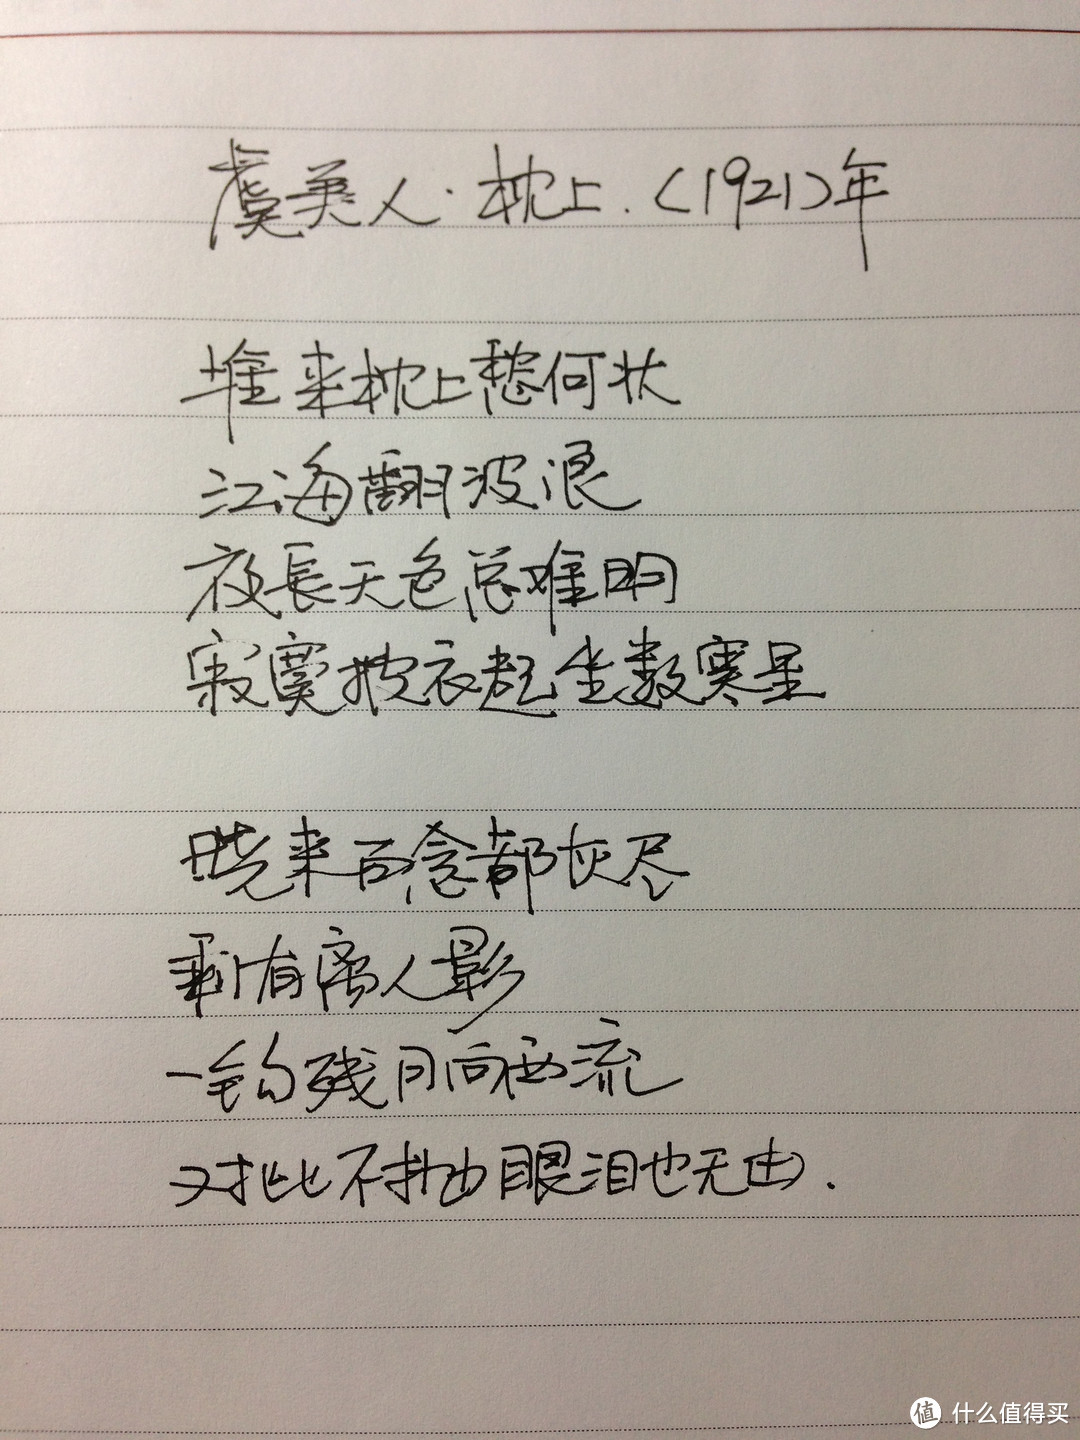 虞美人·枕上.(1921)年
堆来枕上愁何状
江海翻波浪
夜長天色总难明
寂寞披衣起坐数寒星
晓来百念都灰尽
剩有离人影
一钩残月向西流
对此不抛眼泪也无由.
值 什么值得买